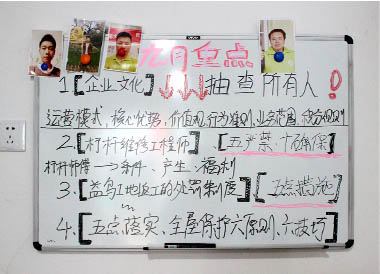 九月重点
1【企业文化】抽查所有人!
运营模式、核心优势、价值观、行为准则、业务范围、积分规则
2.【杠杆维修工程师】【五严禁、十确保】
杠杆师带→条件、产生、福利
3.【益鸟工地返工的处罚制度】【五点措施】
4.【五点落实、全屋保护六原则、六技巧】